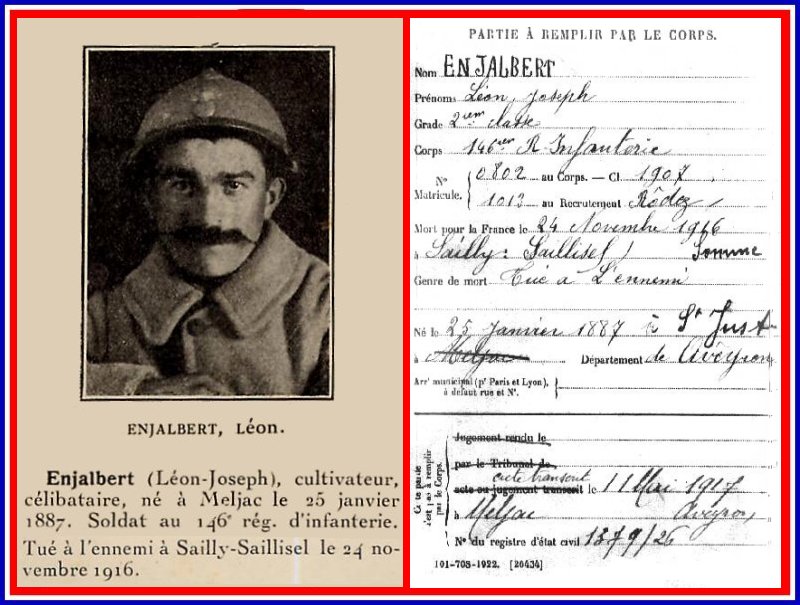 ENJALBERT, Léon.
Enjalbert (Léon-Joseph), cultivateur,
célibataire, né à Meljac le 25 janvier
1887. Soldat au 146e rég. d'infanterie.
Tué à l'ennemi à Sailly-Saillisel le 24 no-
vembre 1916.
PARTIE À REMPLIR PAR LE CORPS.
Nom ENJALBERT
Prénoms Léon, Joseph
Grade 2iem classe
Corps 146iem R Infanterie
No Matricule. 0802 au Corps. — Cl 1907
1013 au Recrutement Rôdez
Mort pour la France le 24 Novembre 1916
à Sailly: Saillisel ) Somme
Genre de mort Tué a L'ennemi
Né le 25 Janvier 1887 à St Just
à Meljac Département de Aveyron
Arrt municipal (pr Paris et Lyon),
à défaut rue et No.
Cette partie n'est pas à remplir par le Corps.
Jugement rendu le
par le Tribunal de
acte transcrit
acte ou jugement transcrit le 11 Mai 1917
à Meljac Aveyron
No du registre d'état civil 1379/26
101-708-1922. [26434]